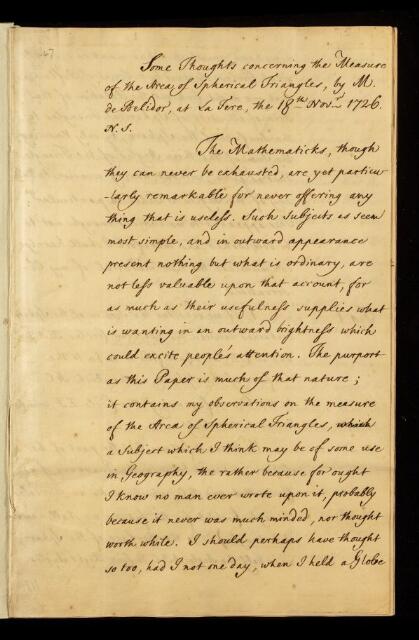 Some Thoughts concerning the Measure
of the Area of Spherical Triangles, by M.
de Belidor, at La Fere, the 18th Novr. 1726.
N.S.
The Mathematicks, though
they can never be exhausted, are yet particu-
-larly remarkable for never offering any
thing that is useless. Such Subjects as seem
most simple, and in outward appearance
present nothing but what is ordinary, are
not less valuable upon that account, for
as much as their usefulness supplies what
is wanting in an outward brightness which
could excite people's attention. The purport
as this Paper is much of that nature;
it contains my observations on the measure
of the Area of Spherical Triangles, which
a Subject which I think may be of some use
in Geography, the rather because for ought
I know no man ever wrote upon it, probably
because it never was much minded, nor thought
worth while. I should perhaps have thought
so too, had I not one day, when I held a Globe